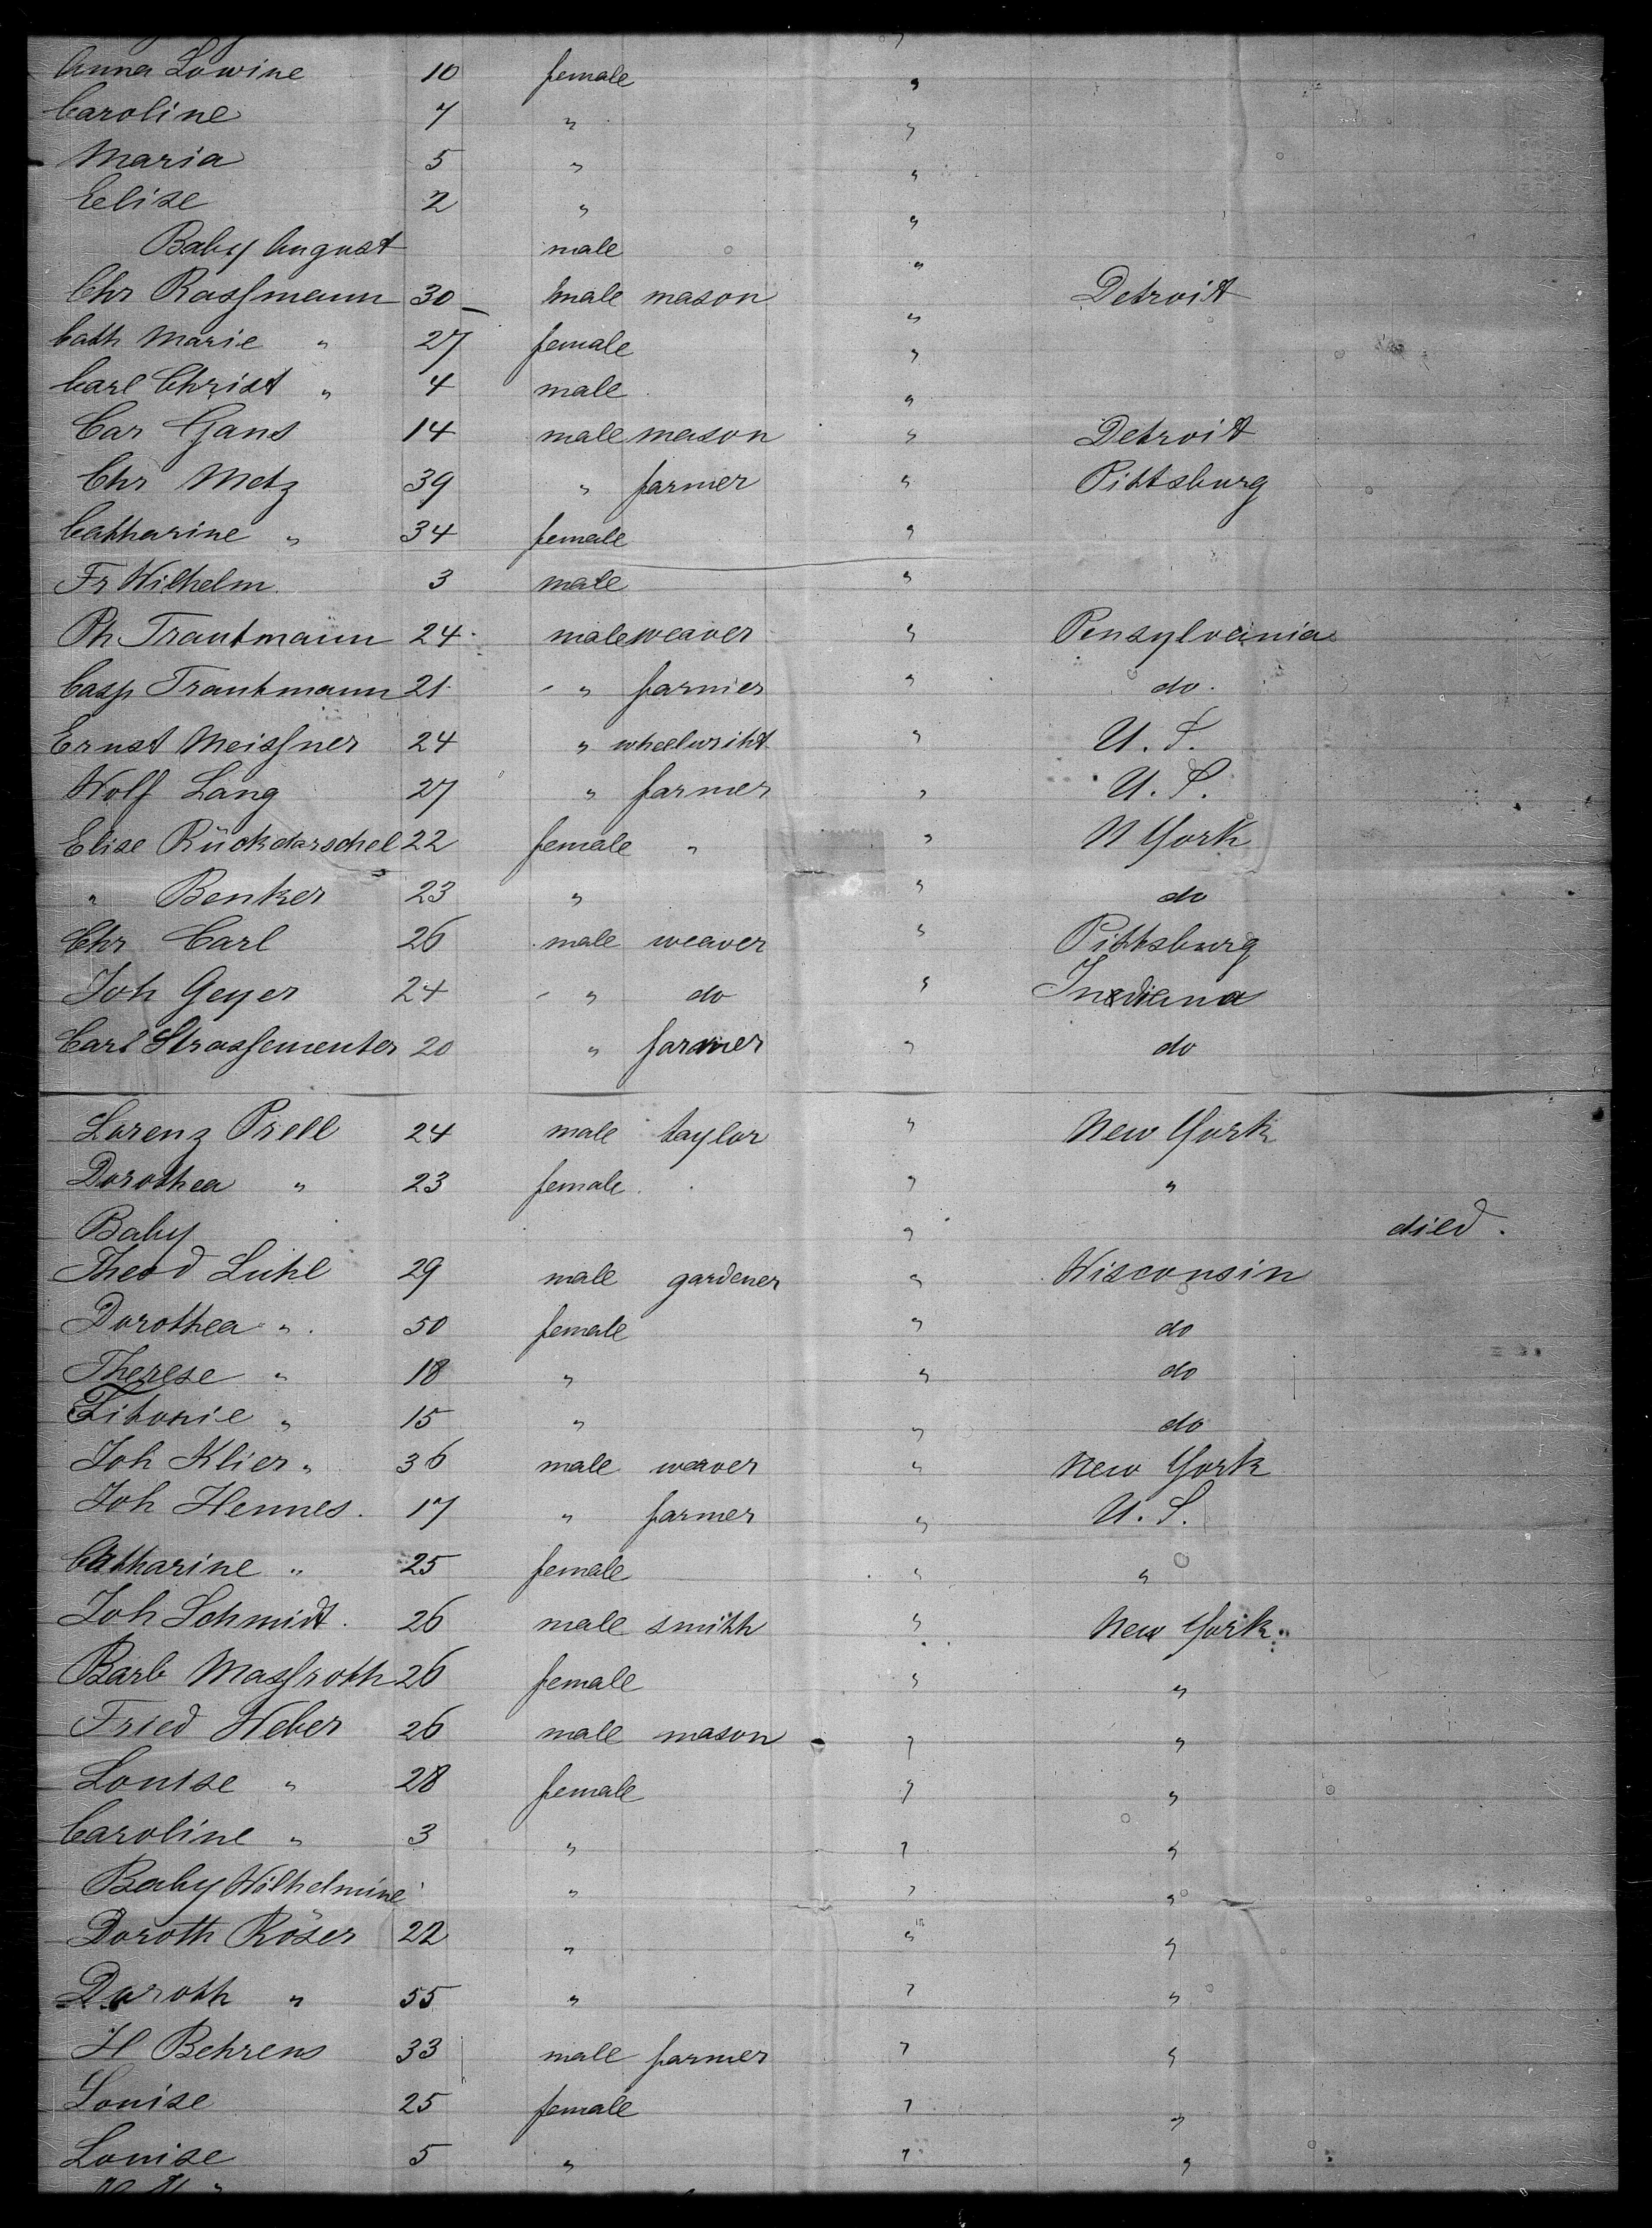 Anna Lowine 10 female "
Caroline 7 " "
Maria 5 " "
Elise 2 " "
Baby August male "
Chr Rassmann 30 male mason " Detroit
Cath Marie " 27 female "
Carl Christ " 4 male "
Car Gans 14 male mason " Detroit
Chr Metz 39 " farmer " Pittsburg
Catharine " 34 female "
Fr Wilhelm 3 male "
Ph Trautmann 24 male weaver " Pensylvania
Casp Trautmann 21 " farmer " do
Ernst Meissner 24 " wheelwriht " U. S.
Wolf Lang 27 " farmer " U. S.
Elise Rückdarschel 22 female " " N York
" Benker 23 " " do
Chr Carl 26 male weaver " Pittsburg
Joh Geyer 24 " do " Indiana
Carl Strassementer 20 " farmer " do
Lorenz Prell 24 male taylor " New York
Dorothea " 23 female " "
Baby " died.
Theod Luhl 29 male gardener " Wisconsin
Dorothea " 50 female " do
Therese " 18 " " do
Titonie " 15 " " do
Joh Klier " 36 male weaver " New York
Joh Hennes 17 " farmer " U. S.
Catharine " 25 female " "
Joh Schmidt 26 male smith " New York
Barb Massroth 26 female " "
Fried Weber 26 male mason " "
Louise " 28 female " "
Caroline " 3 " " "
Baby Wilhelmine " " "
Doroth Röser 22 " " "
Doroth " 55 " " "
H Behrens 33 male farmer " "
Louise 25 female " "
Louise 5 " " "